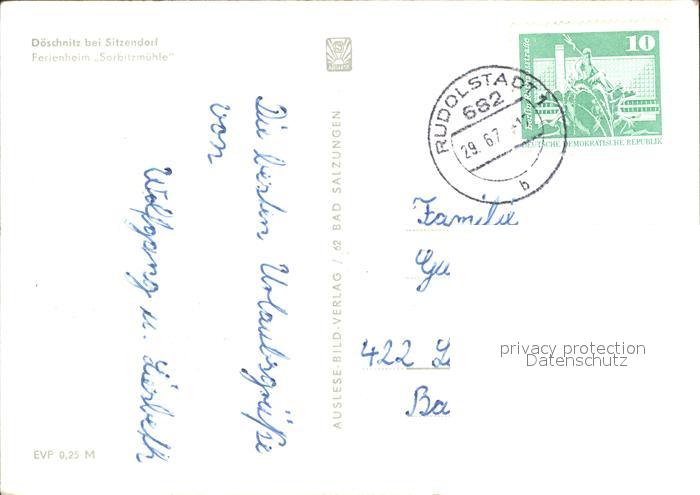 Döschnitz bei Sitzendorf
Ferienheim „Sorbitzmühle"
Die besten Urlaubsgrüße
von
Wolfgang u. Liesbeth
AUSLESE-BILD-VERLAG / 62 BAD SALZUNGEN
EVP 0,25 M
10
DEUTSCHE DEMOKRATISCHE REPUBLIK
RUDOLSTADT 1
682
29. 6.7
b
Familie
Gu
422 L
Ba
privacy protection
Datenschutz